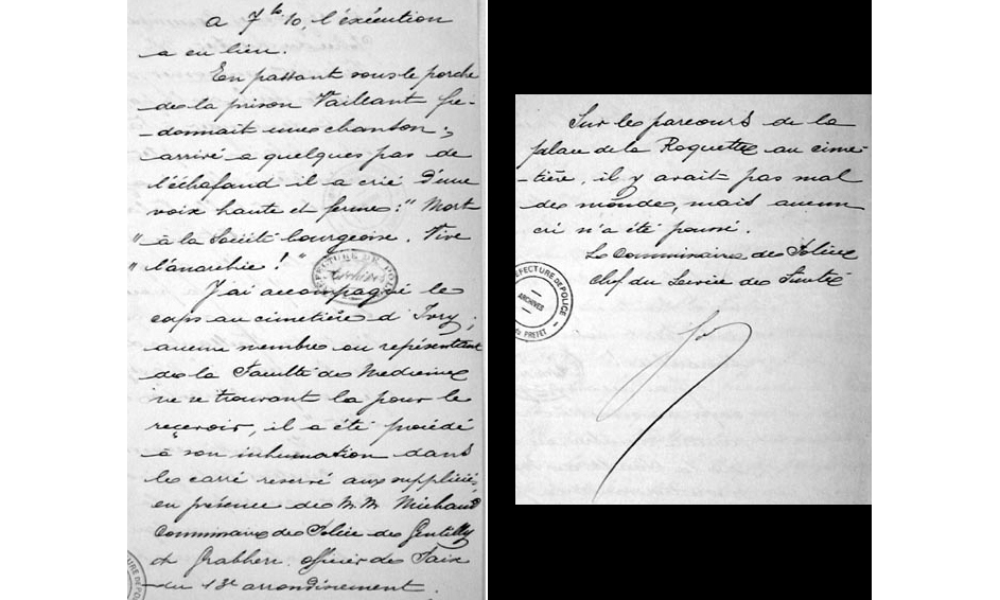 a 7h 10, l'exécution
a eu lieu.
En passant sous le porche
de la prison Vaillant fre-
-donnait une chanson;
arrivé a quelques pas de
l'échafaud il a crié d'une
voix haute et ferme: "Mort
"à la Société bourgeoise. Vive
"l'anarchie!"
J'ai accompagné le
corps au cimetière d'Ivry;
aucun membre ou représentant
de la Faculté de Medecine
ne se trouvant la pour le
reçevoir, il a été procédé
à son inhumation dans
le carré reservé aux suppliciés,
en présence de M.M. Michaud
Commissaire de Police de Gentilly
et officier de Paix
du 13e arrondissement.
PREFECTURE DE POLICE
Sur le parcours de la
place de la Roquette au cime-
-tière, il y avait pas mal
de monde, mais aucun
cri n'a été poussé.
Le Commissaire de Police
chef du Service de Sureté
PREFECTURE DE POLICE
ARCHIVES
du PREFET